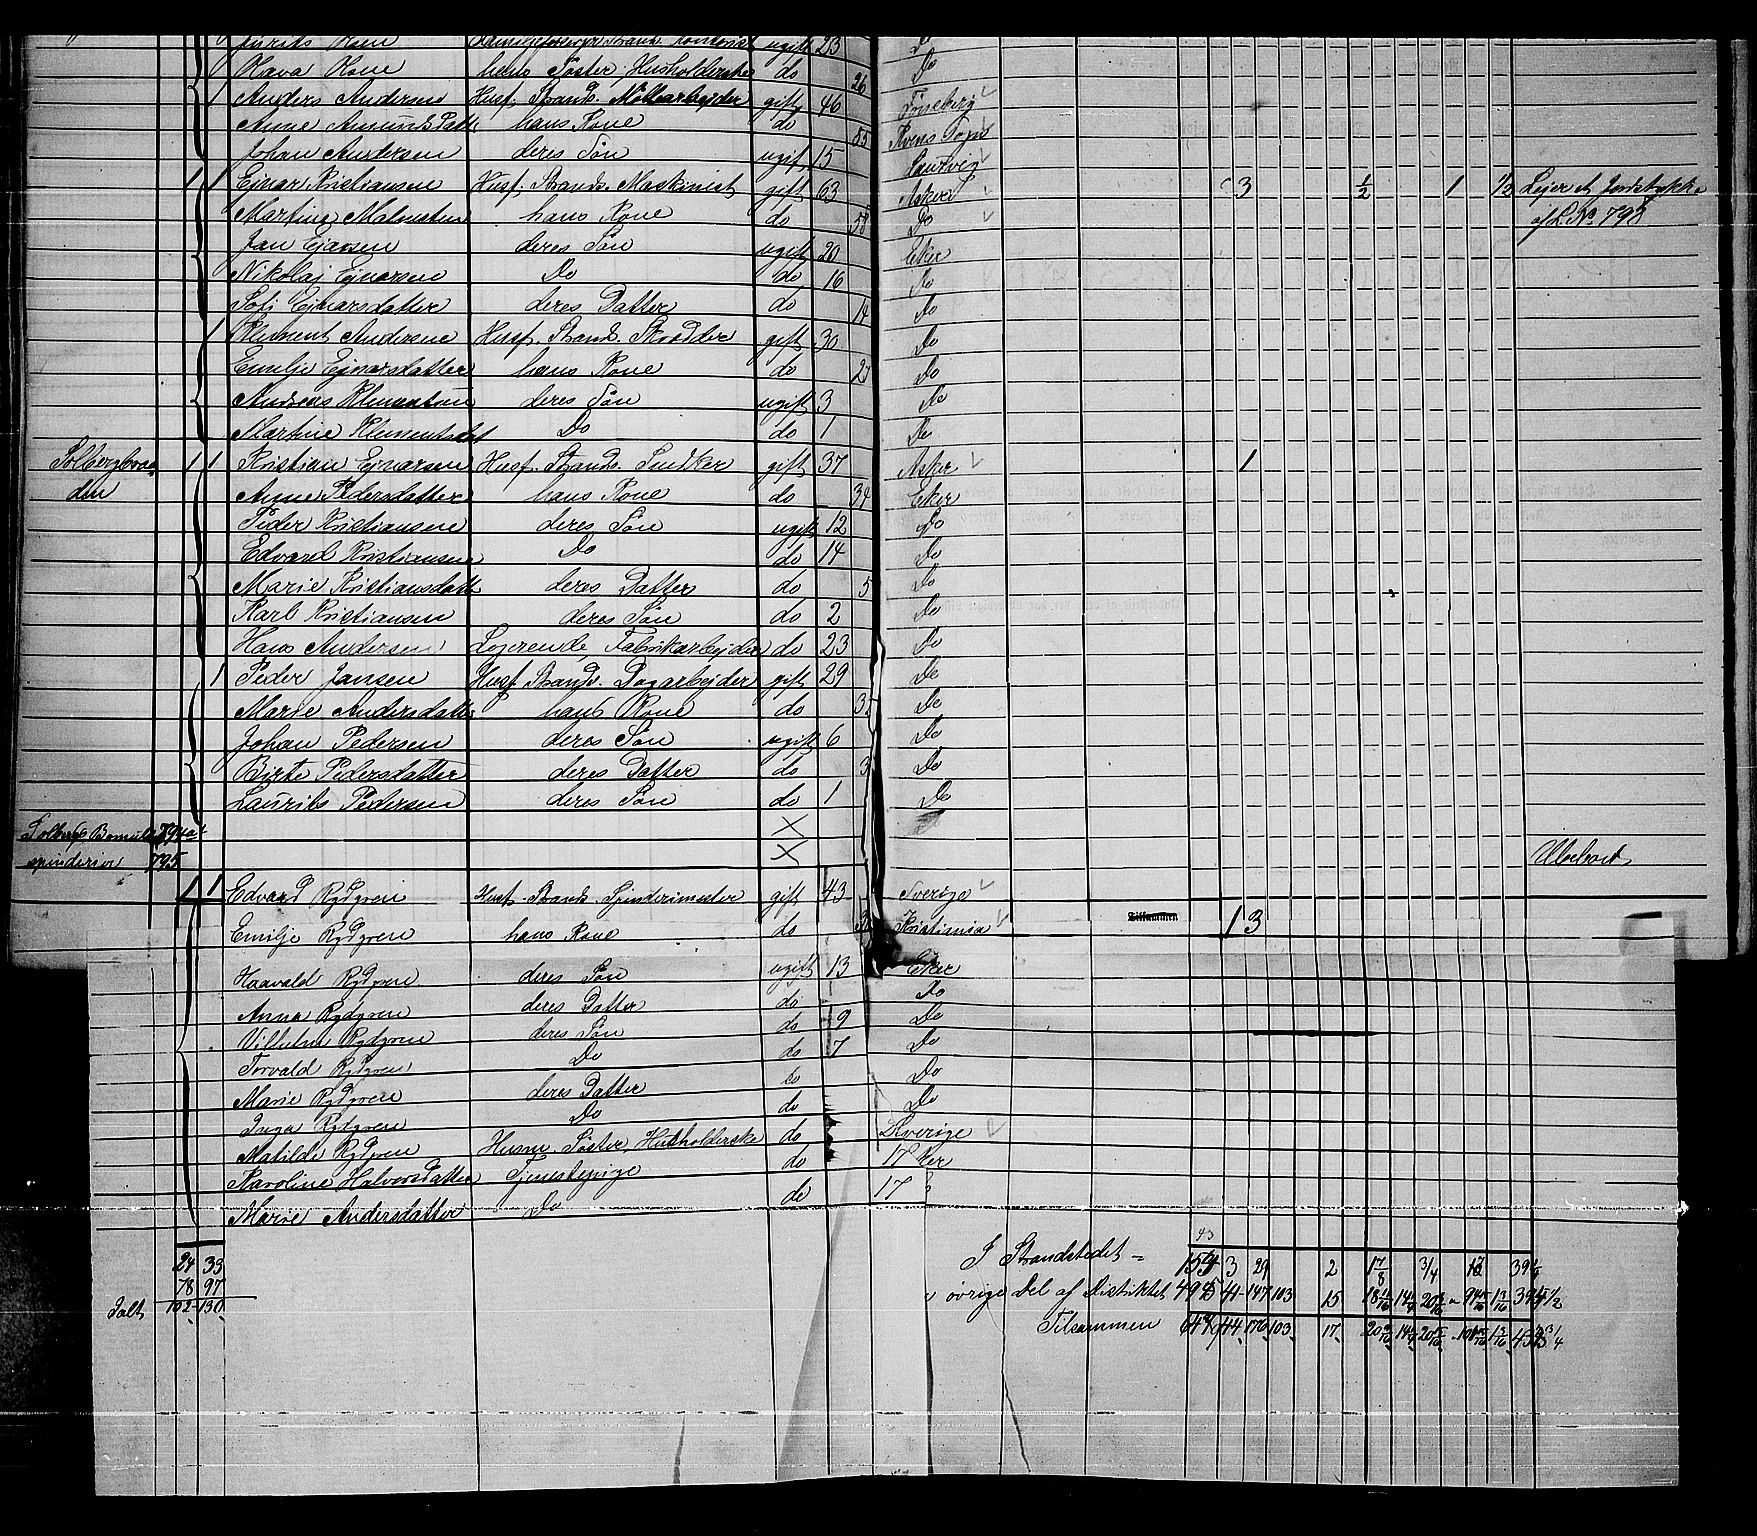 Olava Olsen hans Søster, Husholderske do 26 Do
1 Anders Andersen Husf. Strands. Møllearbejder gift 46 Tønsberg
Anne Amundsdatt hans Kone do 55 Sogn
Johan Andersen deres Søn ugift 15 Laurvig
1 1 Ejnar Kristiansen Husf. Strands. Maskinist gift 63 Asker 3 1/2 1 1/2 Lejer et Jordstykke
Martine Madsdatter hans Kone do 58 Do af L.No 798
Jan Ejnarsen deres Søn ugift 20 Eker
Nikolaj Ejnarsen Do do 16 Do
Sofi Ejnarsdatter deres Datter do 14 Do
1 Klement Andersen Husf. Strands. Skrædder gift 30 Do
Emilje Ejnarsdatter hans Kone do 27 Do
Andreas Klementsen deres Søn ugift 3 Do
Martine Klementsdat Do do 1 Do
Solbergbraa 1 1 Kristian Ejnarsen Husf. Strands. Snedker gift 37 Asker 1
den Anne Pedersdatter hans Kone do 34 Eker
Peder Kristiansen deres Søn ugift 12 Do
Edvard Kristiansen Do do 14 Do
Marie Kristiansdatt deres Datter do 5 Do
Karl Kristiansen deres Søn do 2 Do
Hans Andersen Logerende, Fabrikarbejder do 23 Do
1 Peder Jansen Husf Strands. Dagarbejder gift 29 Do
Marie Andersdatter hans Kone do 32 Do
Johan Pedersen deres Søn ugift 6 Do
Birte Pedersdatter deres Datter do 3 Do
Laurits Pedersen deres Søn do 1 Do
Solbergs Bomulds 794 X
spinderier 795 X Ubeboet
1 1 Edvard Rydgren Husf. Strands. Spinderimester gift 43 Sverige
Tilsammen 13
Emilje Rydgren hans Kone do Kristiania
Haavald Rydgren deres Søn ugift 13 Eker
Anna Rydgren deres Datter do Do
Vilhelm Rydgren deres Søn do 9 Do
Torvald Rydgren Do do 7 Do
Marie Rydgren deres Datter do Do
Inga Rydgren Do do Do
Matilde Rydgren Husm. Søster, Husholderske do Sverige
Karoline Halvorsdatter Tjenestepige do 17 ker
Marie Andersdatter Do do 17
43
24 33 I Strandstedet = 154 3 29 2 17/8 3/4 12 39 1/4
78 97 " øvrige Del af Distriktet 495 41 147 103 15
Ialt 102 - 130 Tilsammen 649 44 176 103 17